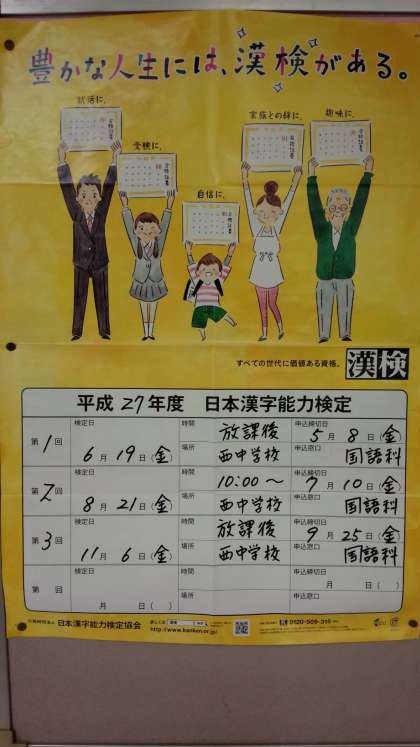 豊かな人生には、漢検がある。
就活に、
受験に、
自信に、
家族との絆に、
趣味に、
合格証書
合格証書
合格証書
合格証書
合格証書
すべての世代に価値ある資格。 漢検
平成27年度 日本漢字能力検定
第1回 検定日 6月19日(金) 時間 放課後 場所 西中学校 申込締切日 5月8日(金) 申込窓口 国語科
第2回 検定日 8月21日(金) 時間 10:00〜 場所 西中学校 申込締切日 7月10日(金) 申込窓口 国語科
第3回 検定日 11月6日(金) 時間 放課後 場所 西中学校 申込締切日 9月25日(金) 申込窓口 国語科
第 回 検定日 月 日( ) 時間 場所 申込締切日 月 日( ) 申込窓口
日本漢字能力検定協会 http://www.kanken.or.jp/ 0120-509-315